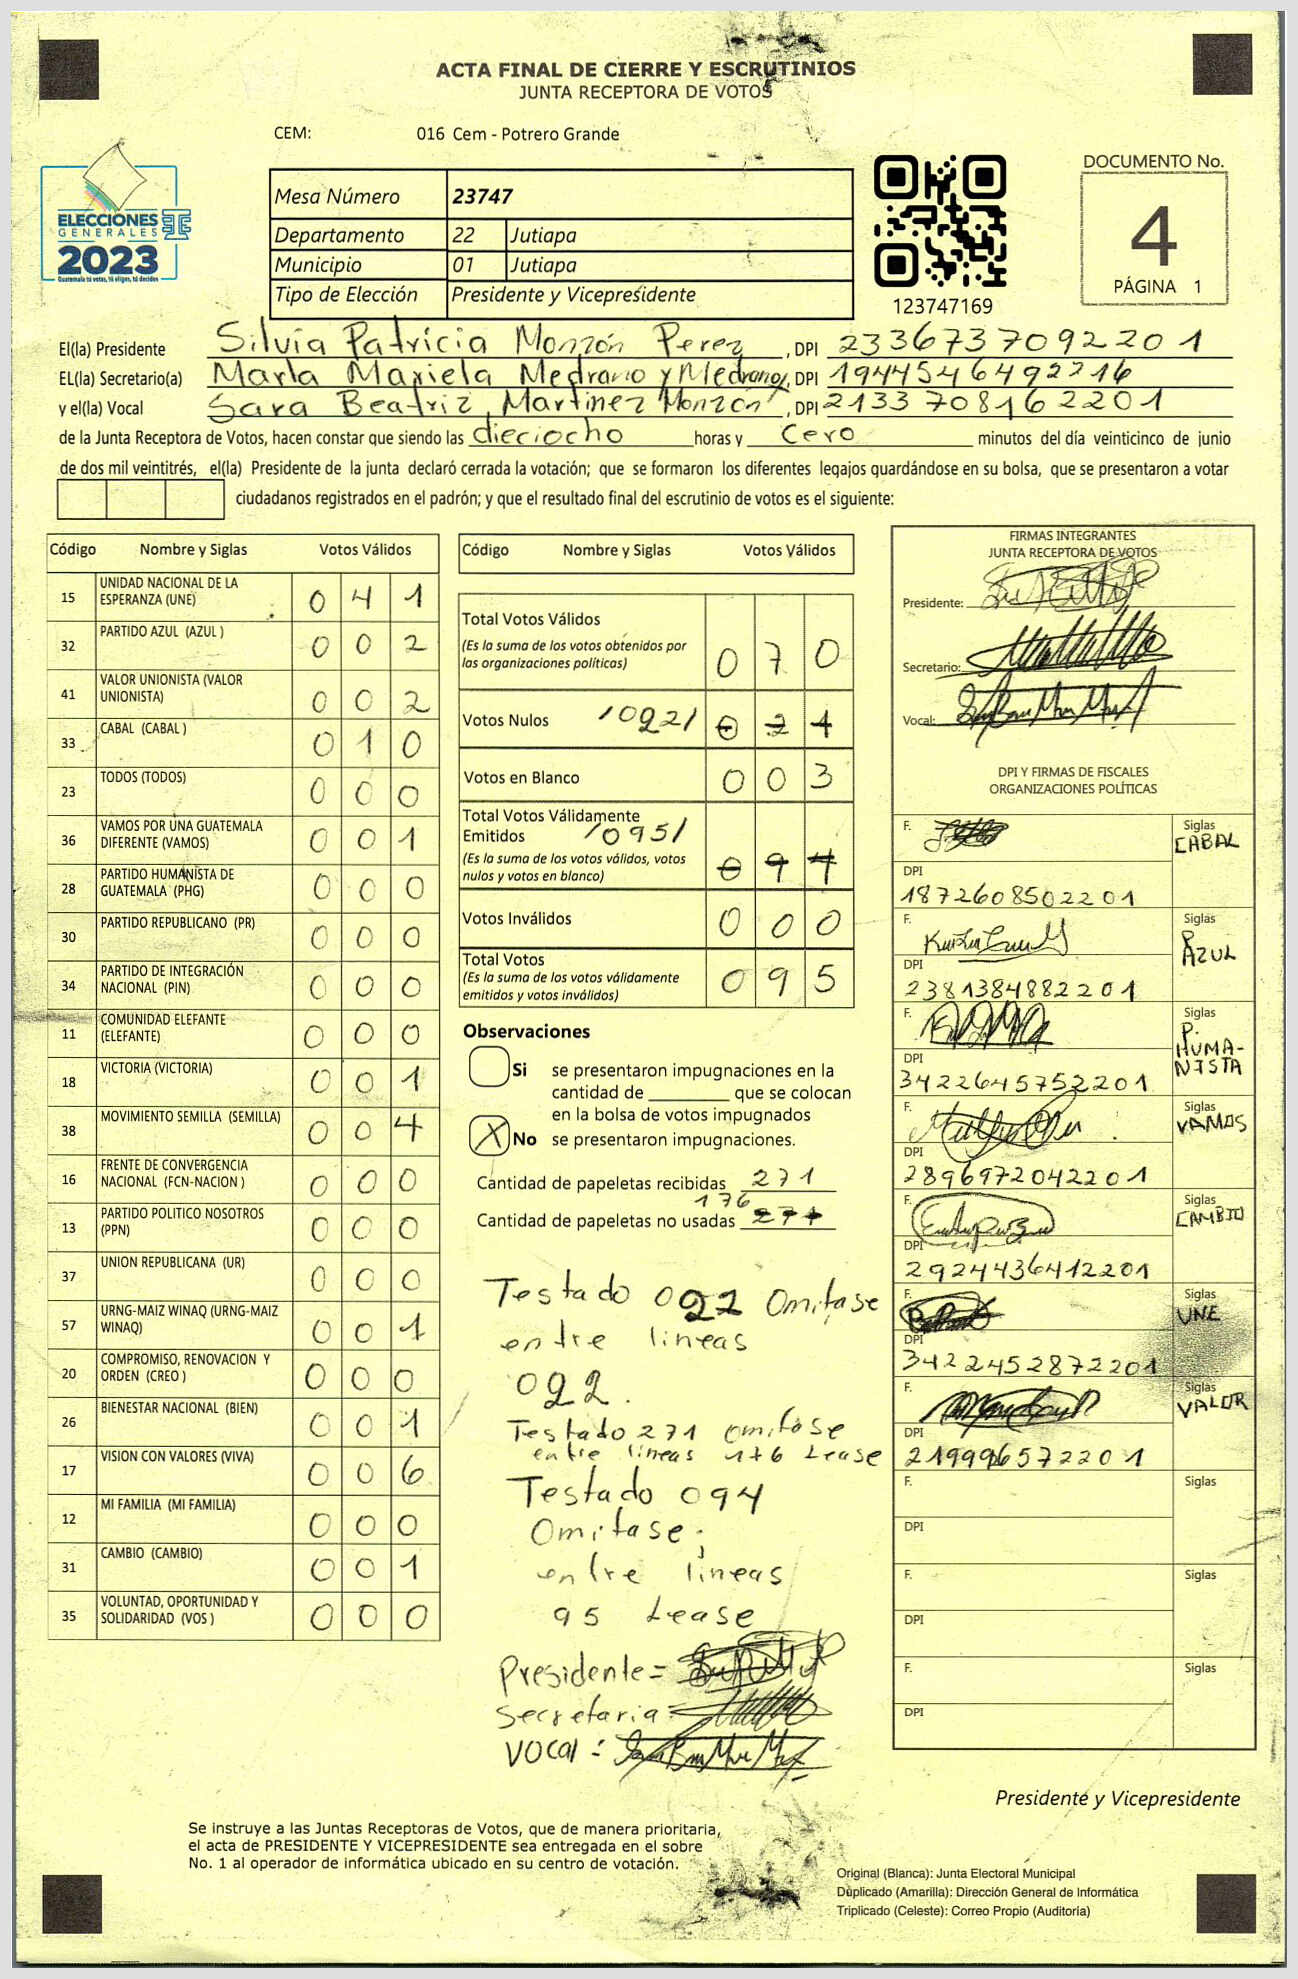 ACTA FINAL DE CIERRE Y ESCRUTINIOS
JUNTA RECEPTORA DE VOTOS
CEM: 016 Cem - Potrero Grande
ELECCIONES
GENERALES
2023
Guatemala tú votas, tú eliges, tú decides
Mesa Número 23747
Departamento 22 Jutiapa
Municipio 01 Jutiapa
Tipo de Elección Presidente y Vicepresidente
123747169
DOCUMENTO No.
4
PÁGINA 1
El(la) Presidente Silvia Patricia Monzón Perez, DPI 2336737092201
EL(la) Secretario(a) Marla Mariela Medrano y Medrano, DPI 1944546492216
y el(la) Vocal Sara Beatriz Martinez Monzón, DPI 2133708162201
de la Junta Receptora de Votos, hacen constar que siendo las dieciocho horas y cero minutos del día veinticinco de junio
de dos mil veintitrés, el(la) Presidente de la junta declaró cerrada la votación; que se formaron los diferentes legajos guardándose en su bolsa, que se presentaron a votar
ciudadanos registrados en el padrón; y que el resultado final del escrutinio de votos es el siguiente:
Código Nombre y Siglas Votos Válidos
15 UNIDAD NACIONAL DE LA ESPERANZA (UNE) 0 4 1
32 PARTIDO AZUL (AZUL ) 0 0 2
41 VALOR UNIONISTA (VALOR UNIONISTA) 0 0 2
33 CABAL (CABAL ) 0 1 0
23 TODOS (TODOS) 0 0 0
36 VAMOS POR UNA GUATEMALA DIFERENTE (VAMOS) 0 0 1
28 PARTIDO HUMANISTA DE GUATEMALA (PHG) 0 0 0
30 PARTIDO REPUBLICANO (PR) 0 0 0
34 PARTIDO DE INTEGRACIÓN NACIONAL (PIN) 0 0 0
11 COMUNIDAD ELEFANTE (ELEFANTE) 0 0 0
18 VICTORIA (VICTORIA) 0 0 1
38 MOVIMIENTO SEMILLA (SEMILLA) 0 0 4
16 FRENTE DE CONVERGENCIA NACIONAL (FCN-NACION ) 0 0 0
13 PARTIDO POLITICO NOSOTROS (PPN) 0 0 0
37 UNION REPUBLICANA (UR) 0 0 0
57 URNG-MAIZ WINAQ (URNG-MAIZ WINAQ) 0 0 1
20 COMPROMISO, RENOVACION Y ORDEN (CREO ) 0 0 0
26 BIENESTAR NACIONAL (BIEN) 0 0 1
17 VISION CON VALORES (VIVA) 0 0 6
12 MI FAMILIA (MI FAMILIA) 0 0 0
31 CAMBIO (CAMBIO) 0 0 1
35 VOLUNTAD, OPORTUNIDAD Y SOLIDARIDAD (VOS ) 0 0 0
Código Nombre y Siglas Votos Válidos
Total Votos Válidos
(Es la suma de los votos obtenidos por
las organizaciones políticas) 0 7 0
Votos Nulos /022/ 0 2 1
Votos en Blanco 0 0 3
Total Votos Válidamente
Emitidos /095/
(Es la suma de los votos válidos, votos
nulos y votos en blanco) 0 9 4
Votos Inválidos 0 0 0
Total Votos
(Es la suma de los votos válidamente
emitidos y votos inválidos) 0 9 5
Observaciones
Si se presentaron impugnaciones en la
cantidad de ________ que se colocan
en la bolsa de votos impugnados
X No se presentaron impugnaciones.
Cantidad de papeletas recibidas 271
176
Cantidad de papeletas no usadas 271
Testado 022 Omitase
entre lineas
022.
Testado 271 omitase
entre lineas 176 Lease
Testado 094
Omitase;
entre lineas
95 Lease
Presidente =
Secretaria =
VOCAL =
FIRMAS INTEGRANTES
JUNTA RECEPTORA DE VOTOS
Presidente:
Secretario:
Vocal:
DPI Y FIRMAS DE FISCALES
ORGANIZACIONES POLÍTICAS
F. Siglas CABAL
DPI 1872608502201
F. Siglas P. AZUL
DPI 2381384882201
F. Siglas P. HUMA-
NISTA
DPI 3422645752201
F. Siglas VAMOS
DPI 2896972042201
F. Siglas CAMBIO
DPI 2924436412201
F. Siglas UNE
DPI 3422452872201
F. Siglas VALOR
DPI
F. Siglas
DPI
F. Siglas
DPI
F. Siglas
DPI
Presidente y Vicepresidente
Se instruye a las Juntas Receptoras de Votos, que de manera prioritaria,
el acta de PRESIDENTE Y VICEPRESIDENTE sea entregada en el sobre
No. 1 al operador de informática ubicado en su centro de votación.
Original (Blanca): Junta Electoral Municipal
Duplicado (Amarilla): Dirección General de Informática
Triplicado (Celeste): Correo Propio (Auditoría)